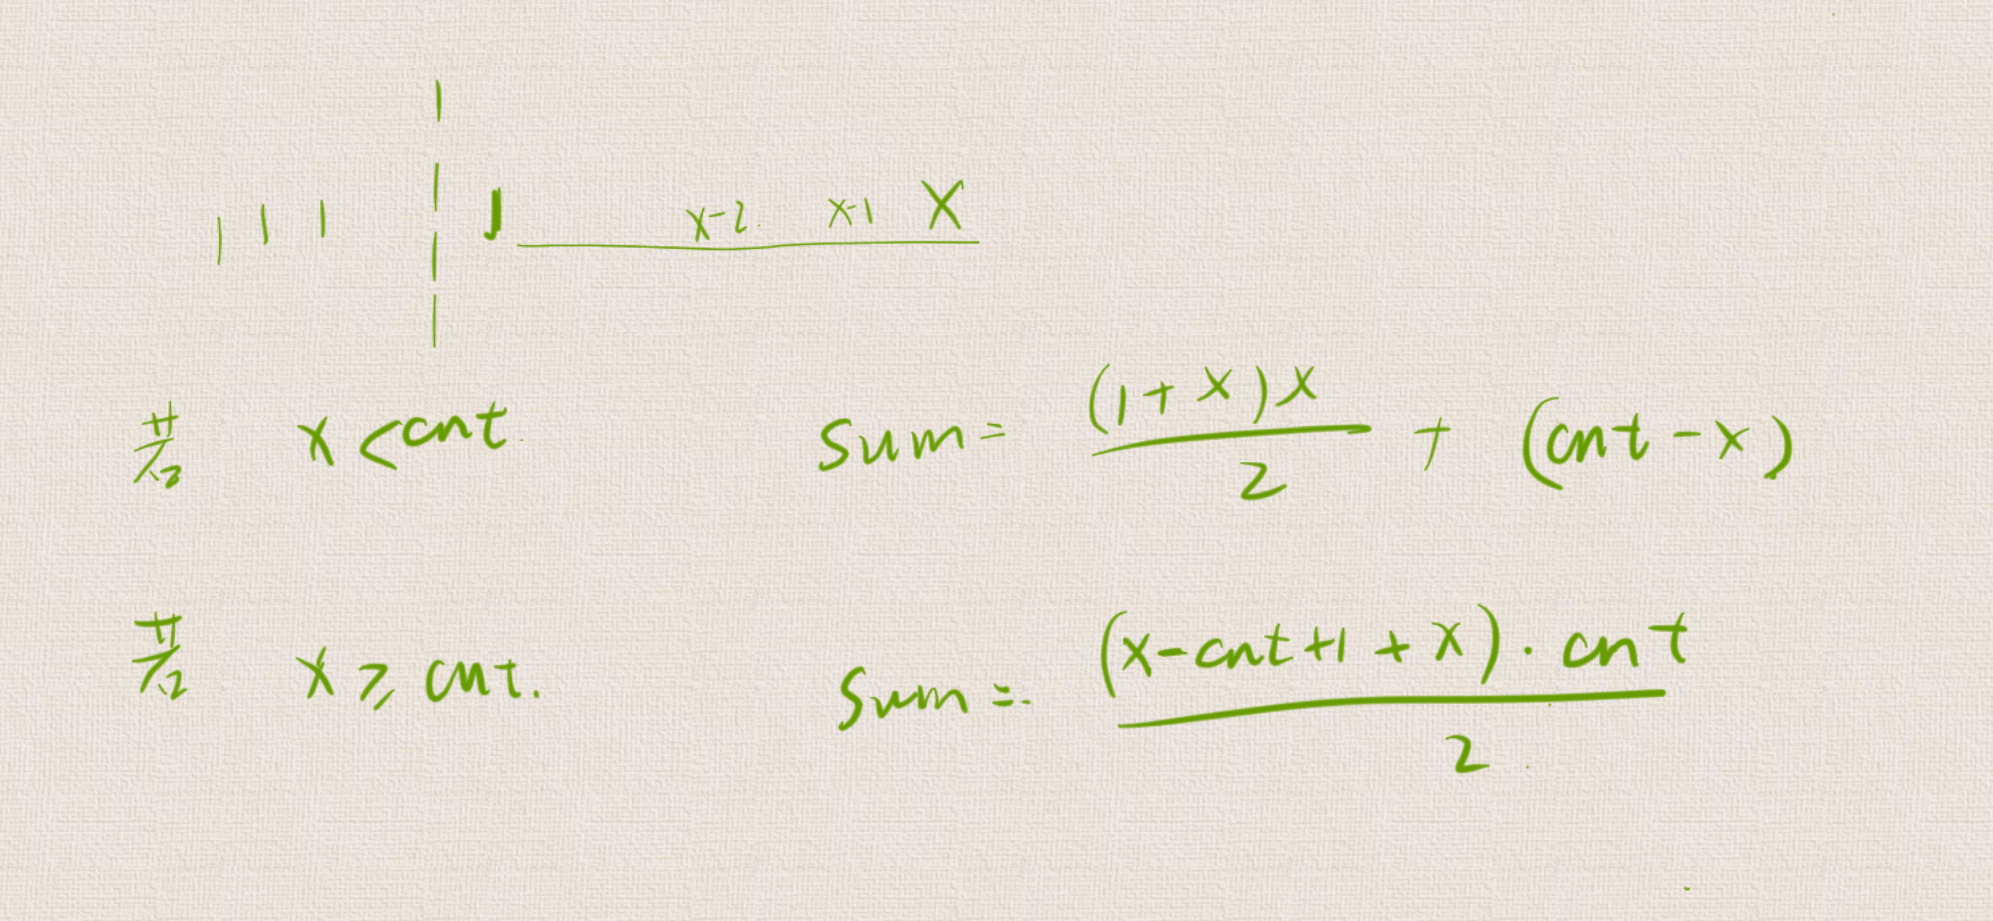 1 1 1 | 1 x-2 x-1 X
若 x < cnt sum = (1+x)x / 2 + (cnt - x)
若 x ≥ cnt. sum = (x-cnt+1+x)·cnt / 2